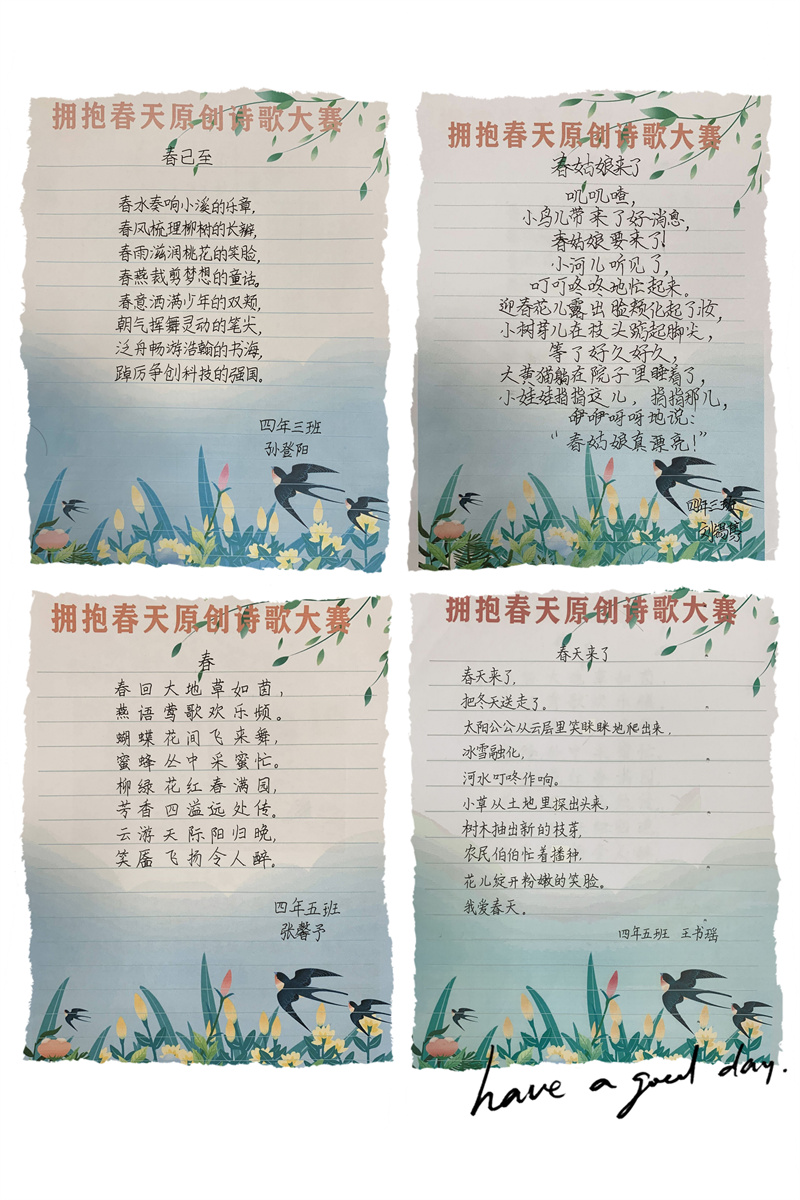 拥抱春天原创诗歌大赛
春已至
春水奏响小溪的乐章,
春风梳理柳树的长辫,
春雨滋润桃花的笑脸,
春燕裁剪梦想的童话。
春意洒满少年的双颊,
朝气挥舞灵动的笔尖,
泛舟畅游浩翰的书海,
踔厉争创科技的强国。
四年三班
孙登阳
拥抱春天原创诗歌大赛
春姑娘来了
叽叽喳,
小鸟儿带来了好消息,
春姑娘要来了!
小河儿听见了,
叮叮咚咚地忙起来。
迎春花儿露出脸颊化起了妆,
小树芽儿在枝头踮起脚尖,
等了好久好久,
大黄猫躺在院子里睡着了,
小娃娃指指这儿,指指那儿,
咿咿呀呀地说:
“春姑娘真漂亮!”
四年三班
拥抱春天原创诗歌大赛
春
春回大地草如茵,
燕语莺歌欢乐频。
蝴蝶花间飞来舞,
蜜蜂丛中采蜜忙。
柳绿花红春满园,
芳香四溢远处传。
云游天际阳归晚,
笑靥飞扬令人醉。
四年五班
张馨予
拥抱春天原创诗歌大赛
春天来了
春天来了,
把冬天送走了。
太阳公公从云层里笑眯眯地爬出来,
冰雪融化,
河水叮咚作响。
小草从土地里探出头来,
树木抽出新的枝芽,
农民伯伯忙着播种,
花儿绽开粉嫩的笑脸。
我爱春天。
四年五班 王书瑶
have a good day.